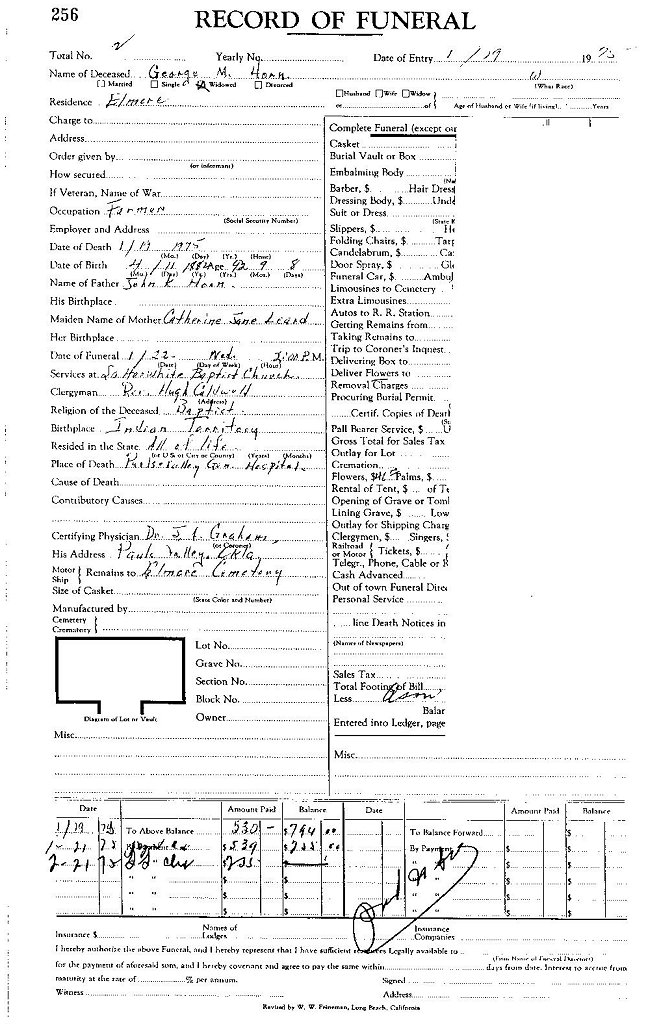 256
RECORD OF FUNERAL
Total No. 2 Yearly No. Date of Entry 1/19 1975
Name of Deceased George M. Horn W
Married Single Widowed Divorced (What Race)
Residence Elmore
Husband Wife Widow
or of Age of Husband or Wife (if living) Years
Charge to
Address
Order given by
(or Informant)
How secured
If Veteran, Name of War
Occupation Farmer
(Social Security Number)
Employer and Address
Date of Death 1/19 1975
(Mo.) (Day) (Yr.) (Hour)
Date of Birth 4/11 1882 Age 92 9 8
(Mo.) (Day) (Yr.) (Yrs.) (Mos.) (Days)
Name of Father John R. Horn
His Birthplace
Maiden Name of Mother Catherine Jane
Her Birthplace
Date of Funeral 1/22 Wed. 2:00 P.M.
(Date) (Day of Week) (Hour)
Services at Baptist Church
(Address)
Clergyman Rev. Hugh Caldwell
Religion of the Deceased Baptist
Birthplace Indian Territory
Resided in the State All of life
(or U.S. or City or County) (Years) (Months)
Place of Death Pauls Valley Gen. Hospital
Cause of Death
Contributory Causes
Certifying Physician Dr. J. L. Graham
(or Coroner)
His Address Pauls Valley, Okla
Motor Ship Remains to Elmore Cemetery
Size of Casket
(State Color and Number)
Manufactured by
Cemetery
Crematory
Lot No.
Grave No.
Section No.
Block No.
Owner
Diagram of Lot or Vault
Misc.
Complete Funeral (except our
Casket
Burial Vault or Box
Embalming Body
Barber, $ Hair Dress
Dressing Body, $ Und
Suit or Dress
Slippers, $ H
Folding Chairs, $ Tar
Candelabrum, $ Ca
Door Spray, $ Gl
Funeral Car, $ Ambul
Limousines to Cemetery
Extra Limousines
Autos to R. R. Station
Getting Remains from
Taking Remains to
Trip to Coroner's Inquest
Delivering Box to
Deliver Flowers to
Removal Charges
Procuring Burial Permit
Certif. Copies of Deat
Pall Bearer Service, $
Gross Total for Sales Tax
Outlay for Lot
Cremation
Flowers, $ Palms, $
Rental of Tent, $ of Te
Opening of Grave or Toml
Lining Grave, $ Low
Outlay for Shipping Charg
Clergymen, $ Singers, $
Railroad or Motor Tickets, $
Telegr., Phone, Cable or
Cash Advanced
Out of town Funeral Dire
Personal Service
line Death Notices in
(Names of Newspapers)
Sales Tax
Total Footing of Bill
Less
Balar
Entered into Ledger, page
Misc.
Date Amount Paid Balance Date Amount Paid Balance
1/19 75 To Above Balance 530 - $794 00 To Balance Forward $
1-21 75 $539 $255 00 By Payment $
2-21 75 $255
Insurance $ Names of Lodges Insurance Companies
I hereby authorize the above Funeral, and I hereby represent that I have sufficient resources Legally available to
(Firm Name of Funeral Director)
for the payment of aforesaid sum, and I hereby covenant and agree to pay the same within days from date. Interest to accrue from
maturity at the rate of % per annum. Signed
Witness Address
Revised by W. W. Feineman, Long Beach, California